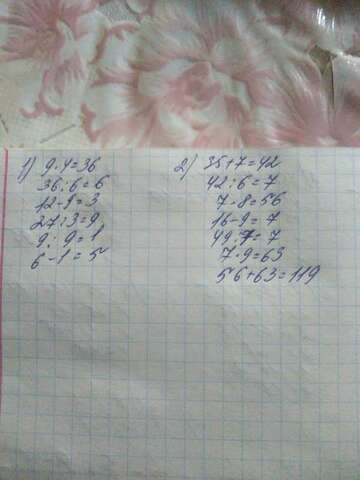 1) 9·4=36
36:6=6
12-9=3
27:3=9
9:9=1
6-1=5
2) 35+7=42
42:6=7
7·8=56
16-9=7
49:7=7
7·9=63
56+63=119